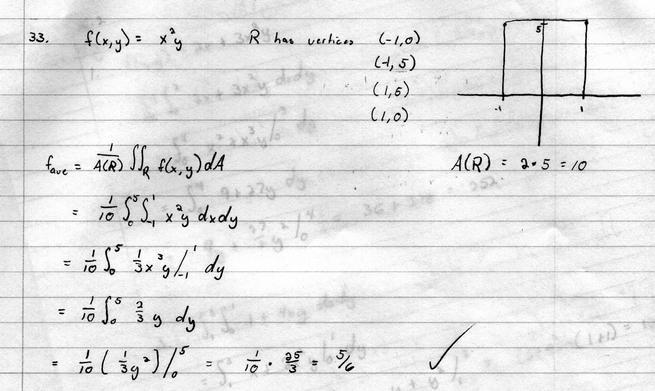 33. f(x,y) = x²y R has vertices (-1,0)
(-1,5)
(1,5)
(1,0)
5
-1 1
f_ave = 1/A(R) ∬_R f(x,y) dA A(R) = 2·5 = 10
= 1/10 ∫₀⁵ ∫₋₁¹ x²y dxdy
= 1/10 ∫₀⁵ 1/3 x³y /₋₁¹ dy
= 1/10 ∫₀⁵ 2/3 y dy
= 1/10 (1/3 y²) /₀⁵ = 1/10 · 25/3 = 5/6 ✓